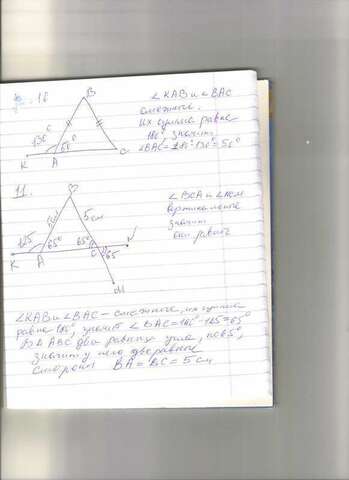 B
∠KAB и ∠BAC
смежные.
Их сумма равна
180°, значит
∠BAC = 180° - 130° = 50°
130°
50°
K A C
11.
5 см
∠BCA и ∠NCM
вертикальные
значит
они равны
65° 65°
K A C N
65
M
∠KAB и ∠BAC - смежные, их сумма
равна 180°, значит ∠BAC = 180° -
В Δ ABC два равных угла, по 65°,
значит у него две равные
стороны BA = BC = 5 см